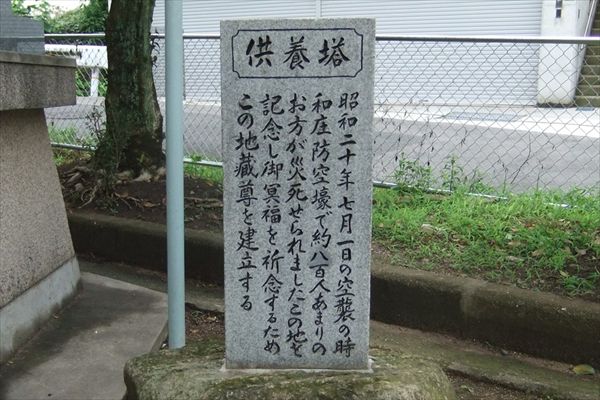 供養塔
昭和二十年七月一日の空襲の時
和庄防空壕で約八百人あまりの
お方が災死せられましたこの地を
記念し御冥福を祈念するため
この地蔵尊を建立する